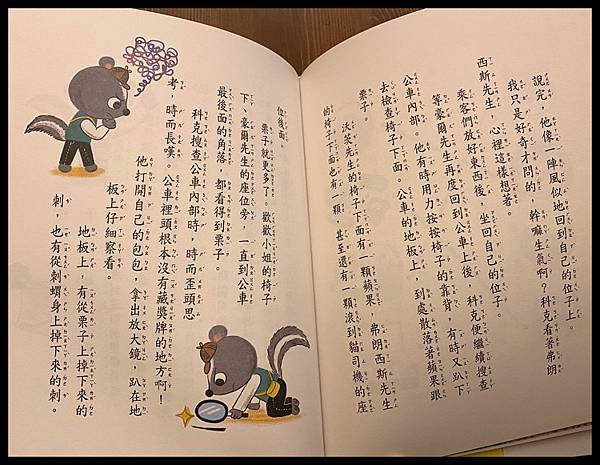 說完，他像一陣風似地回到自己的位子上。
「我只是好奇才問的，幹嘛生氣啊？」科克看著弗朗
西斯先生，心裡這樣想著。
乘客們放好東西後，坐回自己的位子。
等豪爾先生再度回到公車上後，科克便繼續搜查
公車內部。他有時用力按按椅子的靠背，有時又趴下
去檢查椅子下面。公車的地板上，到處散落著蘋果跟
栗子。
沃茨先生的椅子下面有一顆蘋果，弗朗西斯先生
的椅子下面也有一顆，甚至還有一顆滾到貓司機的座
位後面。
栗子就更多了，歡歡小姐的椅子
下、豪爾先生的座位旁，一直到公車
最後面的角落，都看得到栗子。
科克搜查公車內部時，時而歪頭思
考，時而長嘆，公車裡頭根本沒有藏獎牌的地方啊！
他打開自己的包包，拿出放大鏡，趴在地
板上仔細察看。
地板上，有從栗子上掉下來的
刺，也有從刺蝟身上掉下來的刺。